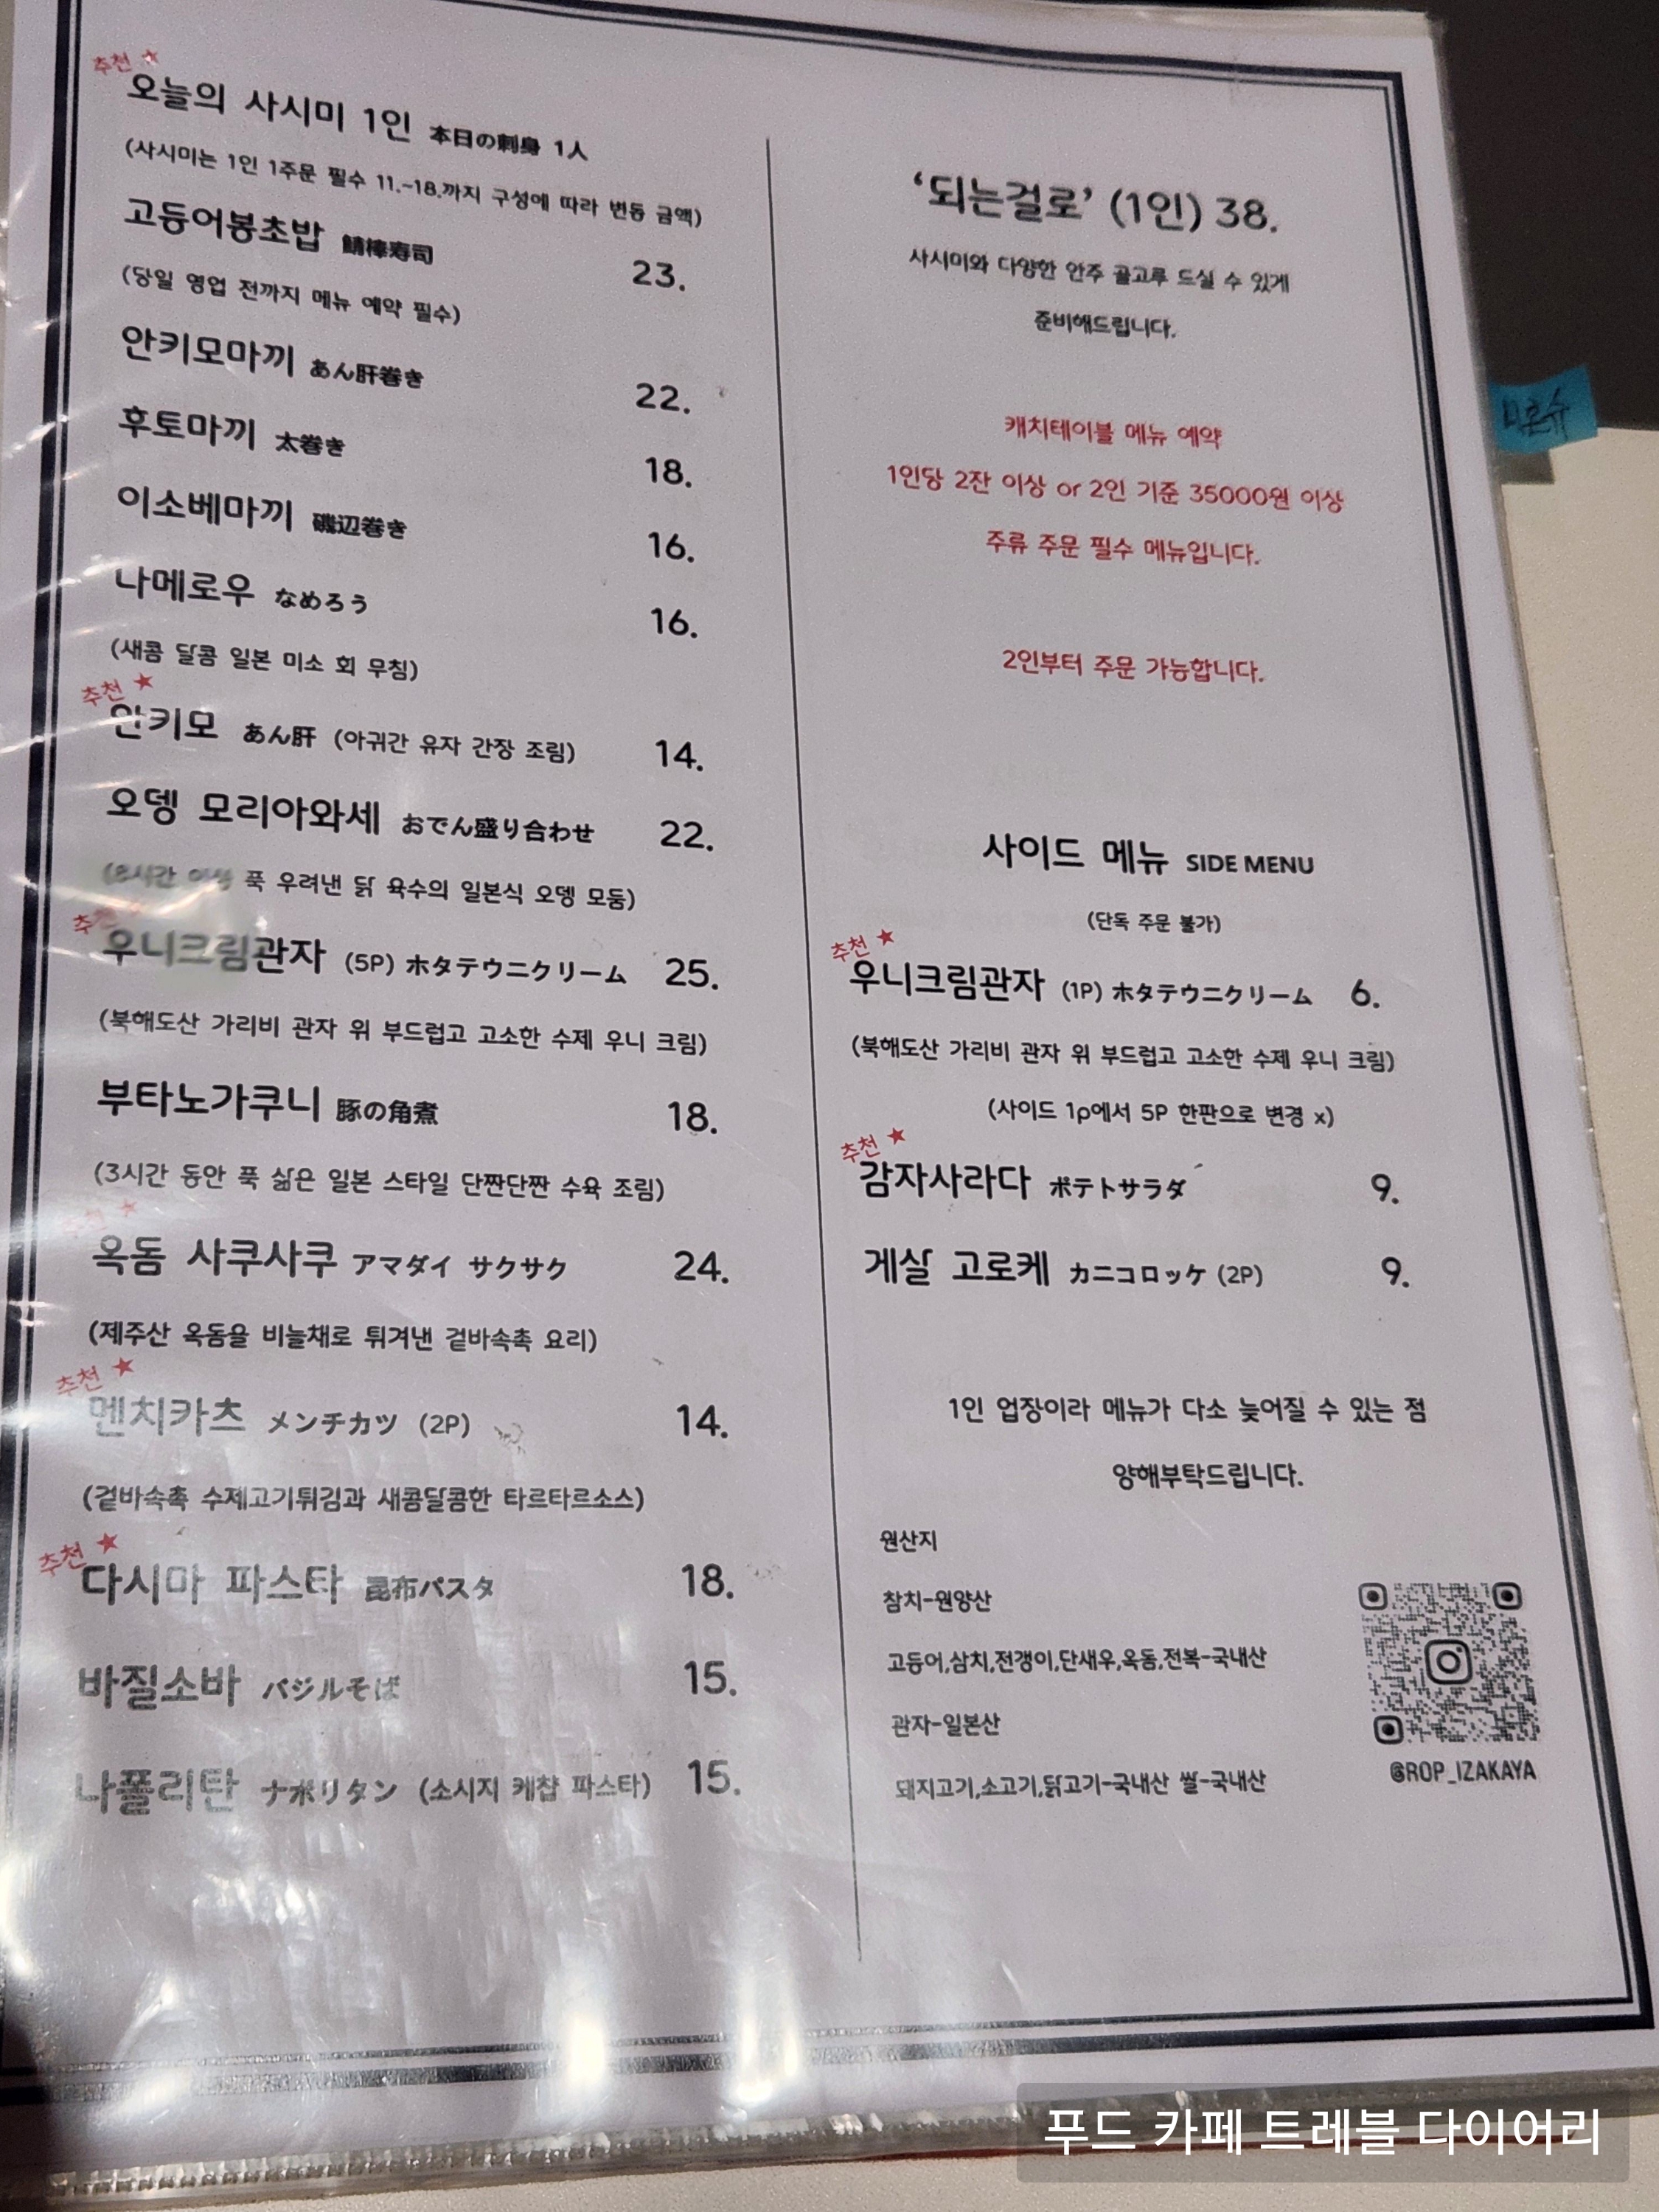 추천 ★
오늘의 사시미 1인 本日の刺身 1人
(사시미는 1인 1주문 필수 11.~18.까지 구성에 따라 변동 금액)
고등어봉초밥 鯖棒寿司 23.
(당일 영업 전까지 메뉴 예약 필수)
안키모마끼 あん肝巻き 22.
후토마끼 太巻き 18.
이소베마끼 磯辺巻き 16.
나메로우 なめろう 16.
(새콤 달콤 일본 미소 회 무침)
추천 ★
안키모 あん肝 (아귀간 유자 간장 조림) 14.
오뎅 모리아와세 おでん盛り合わせ 22.
(8시간 이상 푹 우려낸 닭 육수의 일본식 오뎅 모둠)
추천 ★
우니크림관자 (5P) ホタテウニクリーム 25.
(북해도산 가리비 관자 위 부드럽고 고소한 수제 우니 크림)
부타노가쿠니 豚の角煮 18.
(3시간 동안 푹 삶은 일본 스타일 단짠단짠 수육 조림)
추천 ★
옥돔 사쿠사쿠 アマダイ サクサク 24.
(제주산 옥돔을 비늘채로 튀겨낸 겉바속촉 요리)
추천 ★
멘치카츠 メンチカツ (2P) 14.
(겉바속촉 수제고기튀김과 새콤달콤한 타르타르소스)
추천 ★
다시마 파스타 昆布パスタ 18.
바질소바 バジルそば 15.
나폴리탄 ナポリタン (소시지 케찹 파스타) 15.
‘되는걸로’ (1인) 38.
사시미와 다양한 안주 골고루 드실 수 있게
준비해드립니다.
캐치테이블 메뉴 예약
1인당 2잔 이상 or 2인 기준 35000원 이상
주류 주문 필수 메뉴입니다.
2인부터 주문 가능합니다.
사이드 메뉴 SIDE MENU
(단독 주문 불가)
추천 ★
우니크림관자 (1P) ホタテウニクリーム 6.
(북해도산 가리비 관자 위 부드럽고 고소한 수제 우니 크림)
(사이드 1p에서 5P 한판으로 변경 x)
추천 ★
감자사라다 ポテトサラダ 9.
게살 고로케 カニコロッケ (2P) 9.
1인 업장이라 메뉴가 다소 늦어질 수 있는 점
양해부탁드립니다.
원산지
참치-원양산
고등어,삼치,전갱이,단새우,옥돔,전복-국내산
관자-일본산
돼지고기,소고기,닭고기-국내산 쌀-국내산
@ROP_IZAKAYA
푸드 카페 트레블 다이어리